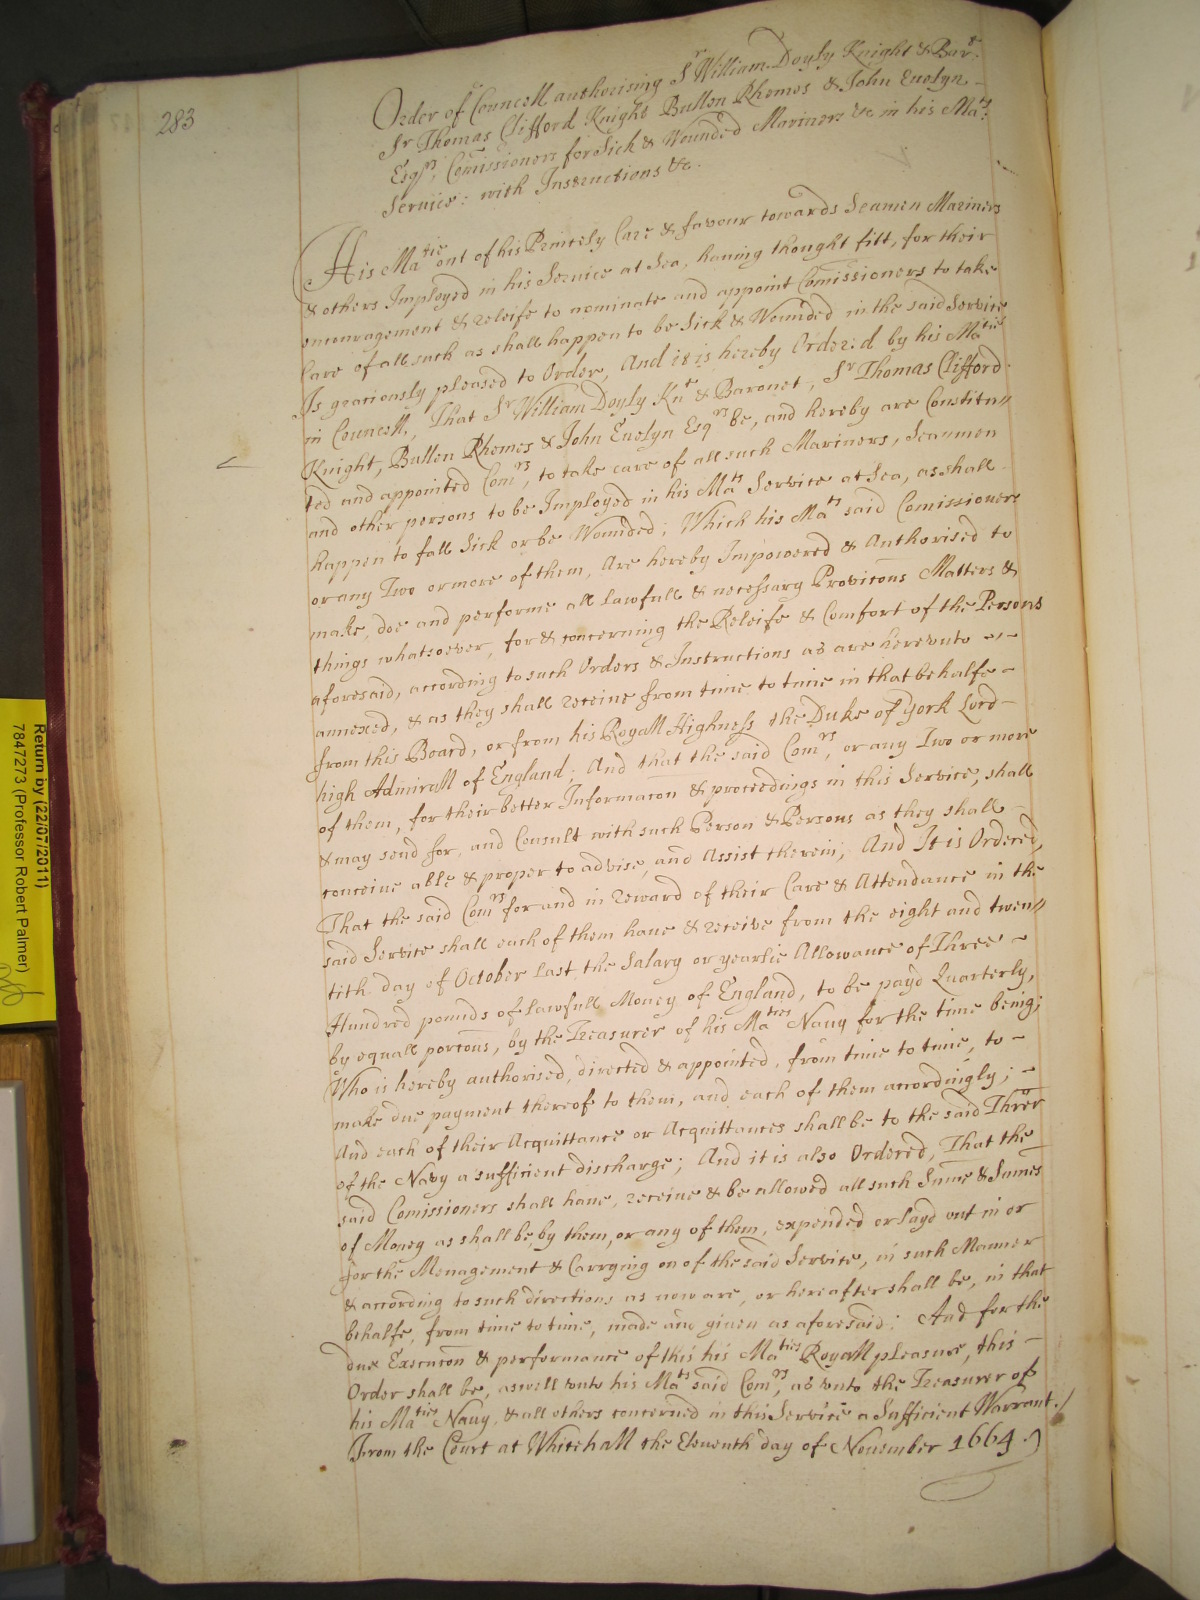 283
Order of Councell authorising Sr William Doyly Knight & Bart.
Sr Thomas Clifford Knight Bullen Rhemes & John Euelyn
Esqrs, Comissioners for Sick & Wounded Mariners &c in his Mats:
Seruice: with Instructions &c.
His Matie out of his Princely Care & favour towards Seamen Mariners
& others Imployed in his Seruice at Sea, hauing thought fitt, for their
encouragement & releife to nominate and appoint Comissioners to take
Care of all such as shall happen to be Sick & Wounded in the said Service
Is graciously pleased to Order, And it is hereby Ordered by his Matie
in Councell, That Sr William Doyly Knt & Baronet, Sr Thomas Clifford
Knight, Bullen Rhemes & John Euelyn Esqrs be, and hereby are Constitu//
ted and appointed Comrs, to take care of all such Mariners, Seamen
and other persons to be Imployed in his Mats Service at Sea, as shall
happen to fall Sick or be Wounded; Which his Mats said Comissioners
or any Two or more of them, Are hereby Impowered & Authorised to
make, doe and performe all lawfull & necessary Provicons Matters &
things whatsoever, for & concerning the Releife & Comfort of the Persons
aforesaid, according to such Orders & Instructions as are herevnto ~ ~
annexed, & as they shall receiue from time to time in that behalfe –
from this Board, or from his Royall Highness the Duke of York Lord –
high Admirall of England; And that the said Comrs, or any Two or more
of them, for their better Informacon & proceedings in this Service, shall
& may send for, and Consult with such Person & Persons as they shall –
conceiue able & proper to advise, and Assist therein; And It is Ordered,
That the said Comrs for and in reward of their Care & Attendance in the
said Service shall each of them haue & receive from the eight and twen//
tith day of October last, the Salary or yearlie Allowance of Three –
Hundred pounds of lawfull Money of England, to be payd Quarterly,
by equall porcons, by the Treasurer of his Maties Nauy for the time being;
Who is hereby authorised, directed & appointed, from time to time, to –
make due payment thereof to them, and each of them accordingly; –
And each of their Acquittance or Acquittances shall be to the said Threr
of the Navy a sufficient discharge; And it is also Ordered, That the
said Comissioners shall haue, receiue & be allowed all such Sume & Sumes
of Money as shall be, by them, or any of them, expended or layd out in or
for the Menagement & Carrying on of the said Service, in such Manner
& according to such directions as now are, or hereafter shall be, in that
behalfe, from time to time, made and giuen as aforesaid: And for the
due Execucon & performance of this his Maties Royall pleasure, this –
Order shall be, aswell vnto his Mats said Comrs, as vnto the Treasurer of
his Maties Nauy, & all others concerned in this Service a Sufficient Warrant./
From the Court at Whitehall the Eleuenth day of Nouember 1664.
Return by (22/07/2011)
7847273 (Professor Robert Palmer)